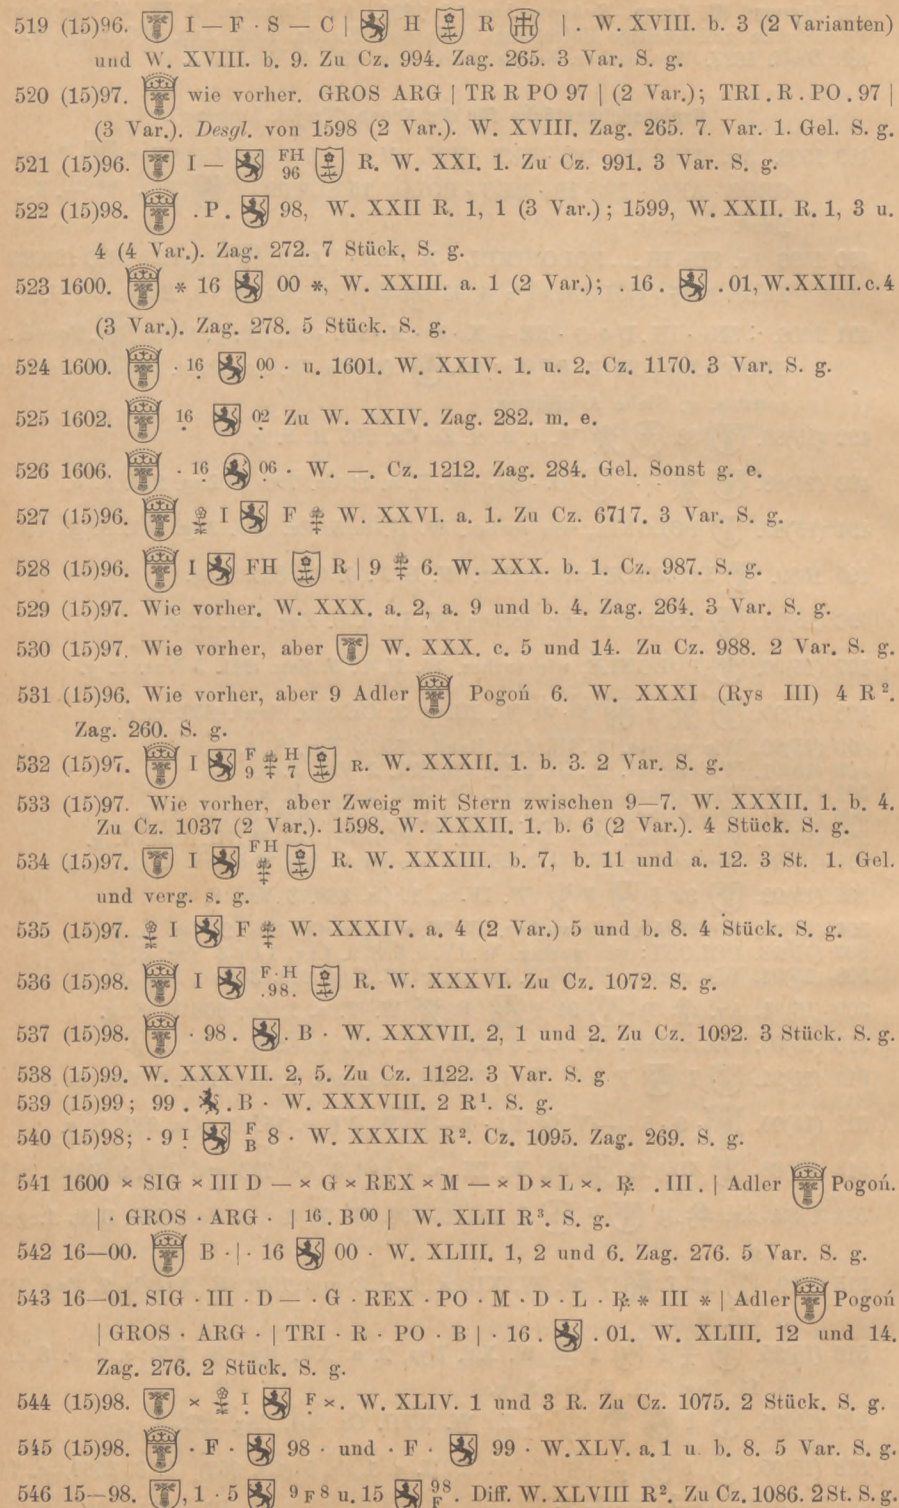 519 (15)96. I — F · S — C | H R | . W. XVIII. b. 3 (2 Varianten)
und W. XVIII. b. 9. Zu Cz. 994. Zag. 265. 3 Var. S. g.
520 (15)97. wie vorher. GROS ARG | TR R PO 97 | (2 Var.); TRI . R . PO . 97 |
(3 Var.). Desgl. von 1598 (2 Var.). W. XVIII. Zag. 265. 7. Var. 1. Gel. S. g.
521 (15)96. I — FH 96 R. W. XXI. 1. Zu Cz. 991. 3 Var. S. g.
522 (15)98. . P . 98, W. XXII R. 1, 1 (3 Var.); 1599, W. XXII. R. 1, 3 u.
4 (4 Var.). Zag. 272. 7 Stück, S. g.
523 1600. * 16 00 *, W. XXIII. a. 1 (2 Var.); . 16 . . 01, W. XXIII. c. 4
(3 Var.). Zag. 278. 5 Stück. S. g.
524 1600. · 16 00 · u. 1601. W. XXIV. 1. u. 2. Cz. 1170. 3 Var. S. g.
525 1602. 16 02 Zu W. XXIV. Zag. 282. m. e.
526 1606. · 16 06 · W. —. Cz. 1212. Zag. 284. Gel. Sonst g. e.
527 (15)96. I F W. XXVI. a. 1. Zu Cz. 6717. 3 Var. S. g.
528 (15)96. I FH R | 9 6. W. XXX. b. 1. Cz. 987. S. g.
529 (15)97. Wie vorher. W. XXX. a. 2, a. 9 und b. 4. Zag. 264. 3 Var. S. g.
530 (15)97. Wie vorher, aber W. XXX. c. 5 und 14. Zu Cz. 988. 2 Var. S. g.
531 (15)96. Wie vorher, aber 9 Adler Pogoń 6. W. XXXI (Rys III) 4 R².
Zag. 260. S. g.
532 (15)97. I F 9 H 7 R. W. XXXII. 1. b. 3. 2 Var. S. g.
533 (15)97. Wie vorher, aber Zweig mit Stern zwischen 9—7. W. XXXII. 1. b. 4.
Zu Cz. 1037 (2 Var.). 1598. W. XXXII. 1. b. 6 (2 Var.). 4 Stück. S. g.
534 (15)97. I FH R. W. XXXIII. b. 7, b. 11 und a. 12. 3 St. 1. Gel.
und verg. s. g.
535 (15)97. I F W. XXXIV. a. 4 (2 Var.) 5 und b. 8. 4 Stück. S. g.
536 (15)98. I F · H . 98 . R. W. XXXVI. Zu Cz. 1072. S. g.
537 (15)98. · 98 . . B · W. XXXVII. 2, 1 und 2. Zu Cz. 1092. 3 Stück. S. g.
538 (15)99. W. XXXVII. 2, 5. Zu Cz. 1122. 3 Var. S. g
539 (15)99; 99 . . B · W. XXXVIII. 2 R¹. S. g.
540 (15)98; · 9 I F B 8 · W. XXXIX R². Cz. 1095. Zag. 269. S. g.
541 1600 × SIG × III D — × G × REX × M — × D × L ×. ℞. . III . | Adler Pogoń.
| · GROS · ARG · | 16 . B 00 | W. XLII R³. S. g.
542 16—00. B · | · 16 00 · W. XLIII. 1, 2 und 6. Zag. 276. 5 Var. S. g.
543 16—01. SIG · III · D — · G · REX · PO · M · D · L · ℞. * III * | Adler Pogoń
| GROS · ARG · | TRI · R · PO · B | · 16 . . 01. W. XLIII. 12 und 14.
Zag. 276. 2 Stück. S. g.
544 (15)98. × I F ×. W. XLIV. 1 und 3 R. Zu Cz. 1075. 2 Stück. S. g.
545 (15)98. · F · 98 · und · F · 99 · W. XLV. a. 1 u. b. 8. 5 Var. S. g.
546 15—98. , 1 · 5 9 F 8 u. 15 98 F. Diff. W. XLVIII R². Zu Cz. 1086. 2 St. S. g.